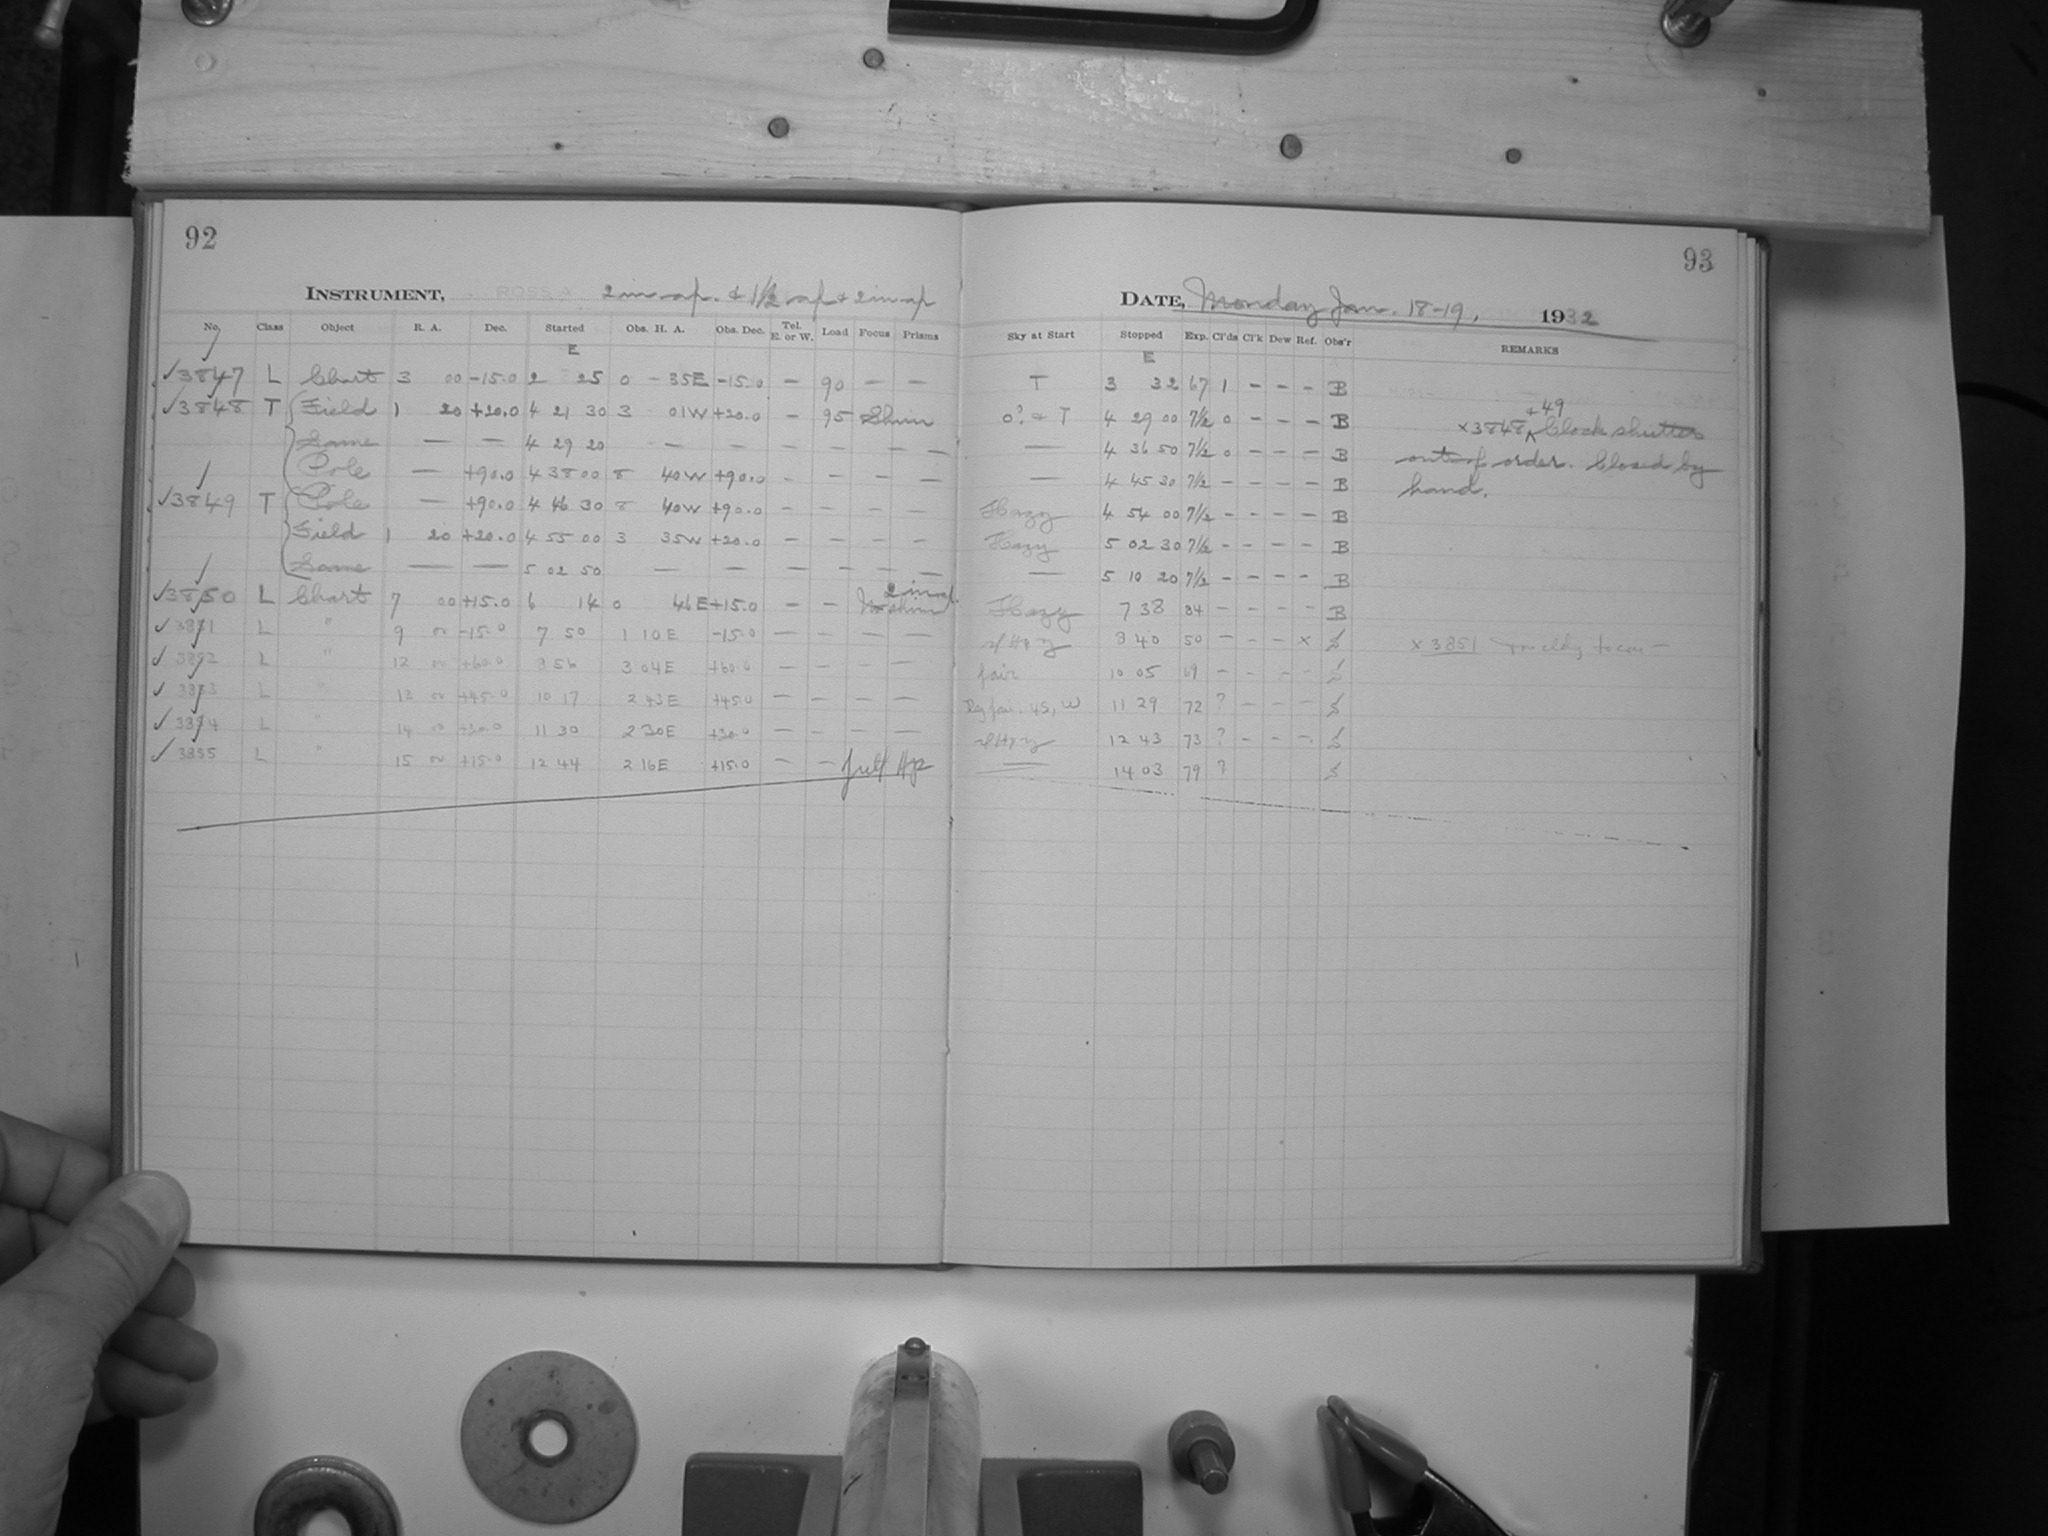 92
INSTRUMENT, ROSS A 2 in ap. & 1½ ap & 2 in ap
No. Class Object R. A. Dec. Started Obs. H. A. Obs. Dec. Tel. E. or W. Load Focus Prisms
E
✓3847 L Chart 3 00 -15.0 2 25 0 - 35E -15.0 - 90 - -
✓3848 T Field 1 20 +20.0 4 21 30 3 01W +20.0 - 95 Shim
Same — — 4 29 20 — — — — — —
Pole — +90.0 4 38 00 8 40W +90.0 - - - -
✓3849 T Pole — +90.0 4 46 30 8 40W +90.0 - - - -
Field 1 20 +20.0 4 55 00 3 35W +20.0 - - - -
Same — — 5 02 50 — — — — — —
2 in ap.
✓3850 L Chart 7 00 +15.0 6 14 0 46E +15.0 - - shim
✓3851 L " 9 00 -15.0 7 50 1 10E -15.0 — — — —
✓3852 L " 12 00 +60.0 8 56 3 04E +60.0 — — — —
✓3853 L " 13 00 +45.0 10 17 2 43E +45.0 — — — —
✓3854 L " 14 00 +30.0 11 30 2 30E +30.0 — — — —
✓3855 L " 15 00 +15.0 12 44 2 16E +15.0 — — full Ap
93
DATE, Monday Jan. 18-19, 1932
Sky at Start Stopped Exp. Cl'ds Cl'k Dew Ref. Obs'r REMARKS
E
T 3 32 67 1 - - - B
0? & T 4 29 00 7½ 0 - - - B
— 4 36 50 7½ 0 - - - B
— 4 45 30 7½ - - - - B
Hazy 4 54 00 7½ - - - - B
Hazy 5 02 30 7½ - - - - B
— 5 10 20 7½ - - - - B
Hazy 7 38 84 - - - - B
8 40 50 - - - x
fair 10 05 69 - - - -
11 29 72 ? - - -
12 43 73 ? - - -
— 14 03 79 ?
+49
x3848 Clock shutter
out of order. Closed by
hand.
x 3851